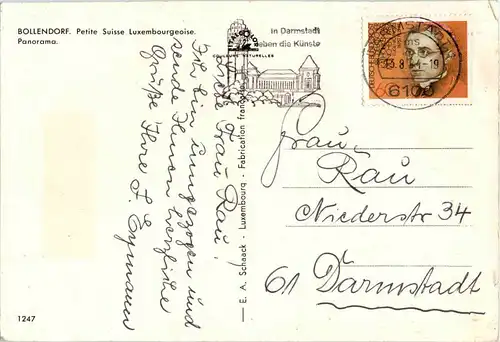 BOLLENDORF. Petite Suisse Luxembourgeoise.
Panorama.
Liebe Frau Rau!
Ich bin umgezogen und
sende Ihnen herzliche
Grüße Ihre F. Eymann
1247
E. A. Schaack - Luxembourg - Fabrication française
In Darmstadt
leben die Künste
6100
Frau
Rau
Niederstr 34
61 Darmstadt